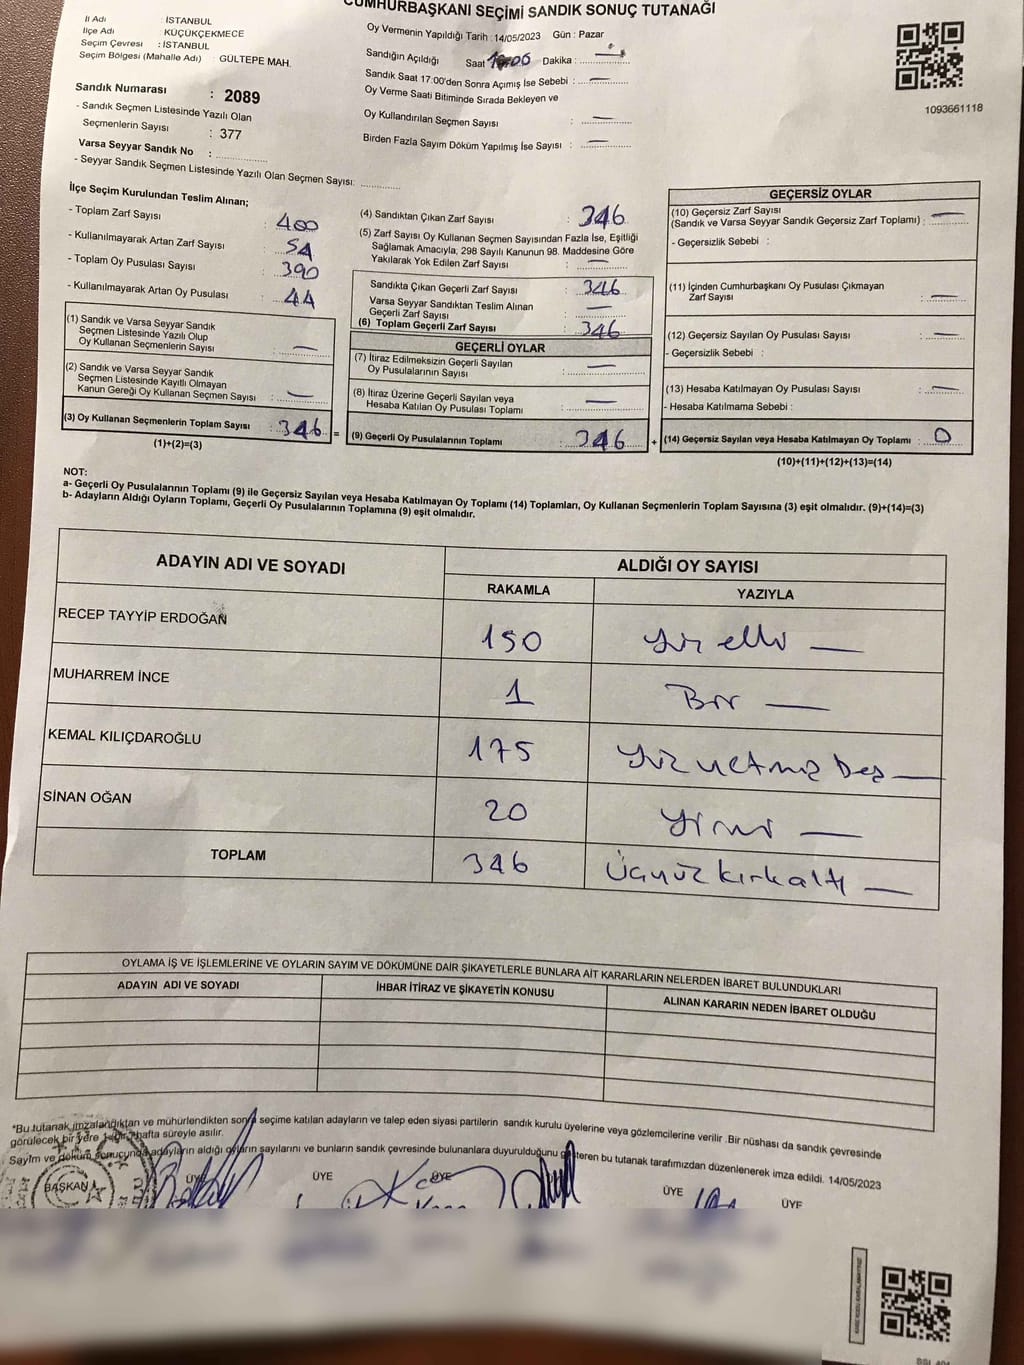 CUMHURBAŞKANI SEÇİMİ SANDIK SONUÇ TUTANAĞI
İl Adı : İSTANBUL
İlçe Adı : KÜÇÜKÇEKMECE
Seçim Çevresi : İSTANBUL
Seçim Bölgesi (Mahalle Adı) : GÜLTEPE MAH.
Sandık Numarası : 2089
- Sandık Seçmen Listesinde Yazılı Olan
Seçmenlerin Sayısı : 377
Varsa Seyyar Sandık No :
- Seyyar Sandık Seçmen Listesinde Yazılı Olan Seçmen Sayısı:
Oy Vermenin Yapıldığı Tarih : 14/05/2023 Gün : Pazar
Sandığın Açıldığı Saat Dakika :
Sandık Saat 17:00'den Sonra Açımış İse Sebebi : —
Oy Verme Saati Bitiminde Sırada Bekleyen ve
Oy Kullandırılan Seçmen Sayısı : —
Birden Fazla Sayım Döküm Yapılmış İse Sayısı : —
1093661118
İlçe Seçim Kurulundan Teslim Alınan;
- Toplam Zarf Sayısı : 400
- Kullanılmayarak Artan Zarf Sayısı : 54
- Toplam Oy Pusulası Sayısı : 390
- Kullanılmayarak Artan Oy Pusulası : 44
(1) Sandık ve Varsa Seyyar Sandık
Seçmen Listesinde Yazılı Olup
Oy Kullanan Seçmenlerin Sayısı : —
(2) Sandık ve Varsa Seyyar Sandık
Seçmen Listesinde Kayıtlı Olmayan
Kanun Gereği Oy Kullanan Seçmen Sayısı : —
(3) Oy Kullanan Seçmenlerin Toplam Sayısı : 346 =
(1)+(2)=(3)
(4) Sandıktan Çıkan Zarf Sayısı : 346
(5) Zarf Sayısı Oy Kullanan Seçmen Sayısından Fazla İse, Eşitliği
Sağlamak Amacıyla, 298 Sayılı Kanunun 98. Maddesine Göre
Yakılarak Yok Edilen Zarf Sayısı : —
Sandıkta Çıkan Geçerli Zarf Sayısı : 346
Varsa Seyyar Sandıktan Teslim Alınan
Geçerli Zarf Sayısı : —
(6) Toplam Geçerli Zarf Sayısı : 346
GEÇERLİ OYLAR
(7) İtiraz Edilmeksizin Geçerli Sayılan
Oy Pusulalarının Sayısı : —
(8) İtiraz Üzerine Geçerli Sayılan veya
Hesaba Katılan Oy Pusulası Toplamı : —
(9) Geçerli Oy Pusulalarının Toplamı : 346 +
GEÇERSİZ OYLAR
(10) Geçersiz Zarf Sayısı
(Sandık ve Varsa Seyyar Sandık Geçersiz Zarf Toplamı) : —
- Geçersizlik Sebebi :
(11) İçinden Cumhurbaşkanı Oy Pusulası Çıkmayan
Zarf Sayısı : —
(12) Geçersiz Sayılan Oy Pusulası Sayısı : —
- Geçersizlik Sebebi :
(13) Hesaba Katılmayan Oy Pusulası Sayısı : —
- Hesaba Katılmama Sebebi :
(14) Geçersiz Sayılan veya Hesaba Katılmayan Oy Toplamı : 0
(10)+(11)+(12)+(13)=(14)
NOT:
a- Geçerli Oy Pusulalarının Toplamı (9) ile Geçersiz Sayılan veya Hesaba Katılmayan Oy Toplamı (14) Toplamları, Oy Kullanan Seçmenlerin Toplam Sayısına (3) eşit olmalıdır. (9)+(14)=(3)
b- Adayların Aldığı Oyların Toplamı, Geçerli Oy Pusulalarının Toplamına (9) eşit olmalıdır.
ADAYIN ADI VE SOYADI ALDIĞI OY SAYISI
RAKAMLA YAZIYLA
RECEP TAYYİP ERDOĞAN 150 Yüz elli —
MUHARREM İNCE 1 Bir —
KEMAL KILIÇDAROĞLU 175 Yüz yetmiş beş —
SİNAN OĞAN 20 Yirmi —
TOPLAM 346 Üçyüz kırk altı —
OYLAMA İŞ VE İŞLEMLERİNE VE OYLARIN SAYIM VE DÖKÜMÜNE DAİR ŞİKAYETLERLE BUNLARA AİT KARARLARIN NELERDEN İBARET BULUNDUKLARI
ADAYIN ADI VE SOYADI İHBAR İTİRAZ VE ŞİKAYETİN KONUSU ALINAN KARARIN NEDEN İBARET OLDUĞU
*Bu tutanak imzalandıktan ve mühürlendikten sonra seçime katılan adayların ve talep eden siyasi partilerin sandık kurulu üyelerine veya gözlemcilerine verilir .Bir nüshası da sandık çevresinde
görülecek bir yere 1 hafta süreyle asılır.
Sayım ve döküm sonucunda adayların aldığı oyların sayılarını ve bunların sandık çevresinde bulunanlara duyurulduğunu gösteren bu tutanak tarafımızdan düzenlenerek imza edildi. 14/05/2023
BAŞKAN ÜYE ÜYE ÜYE ÜYE ÜYE